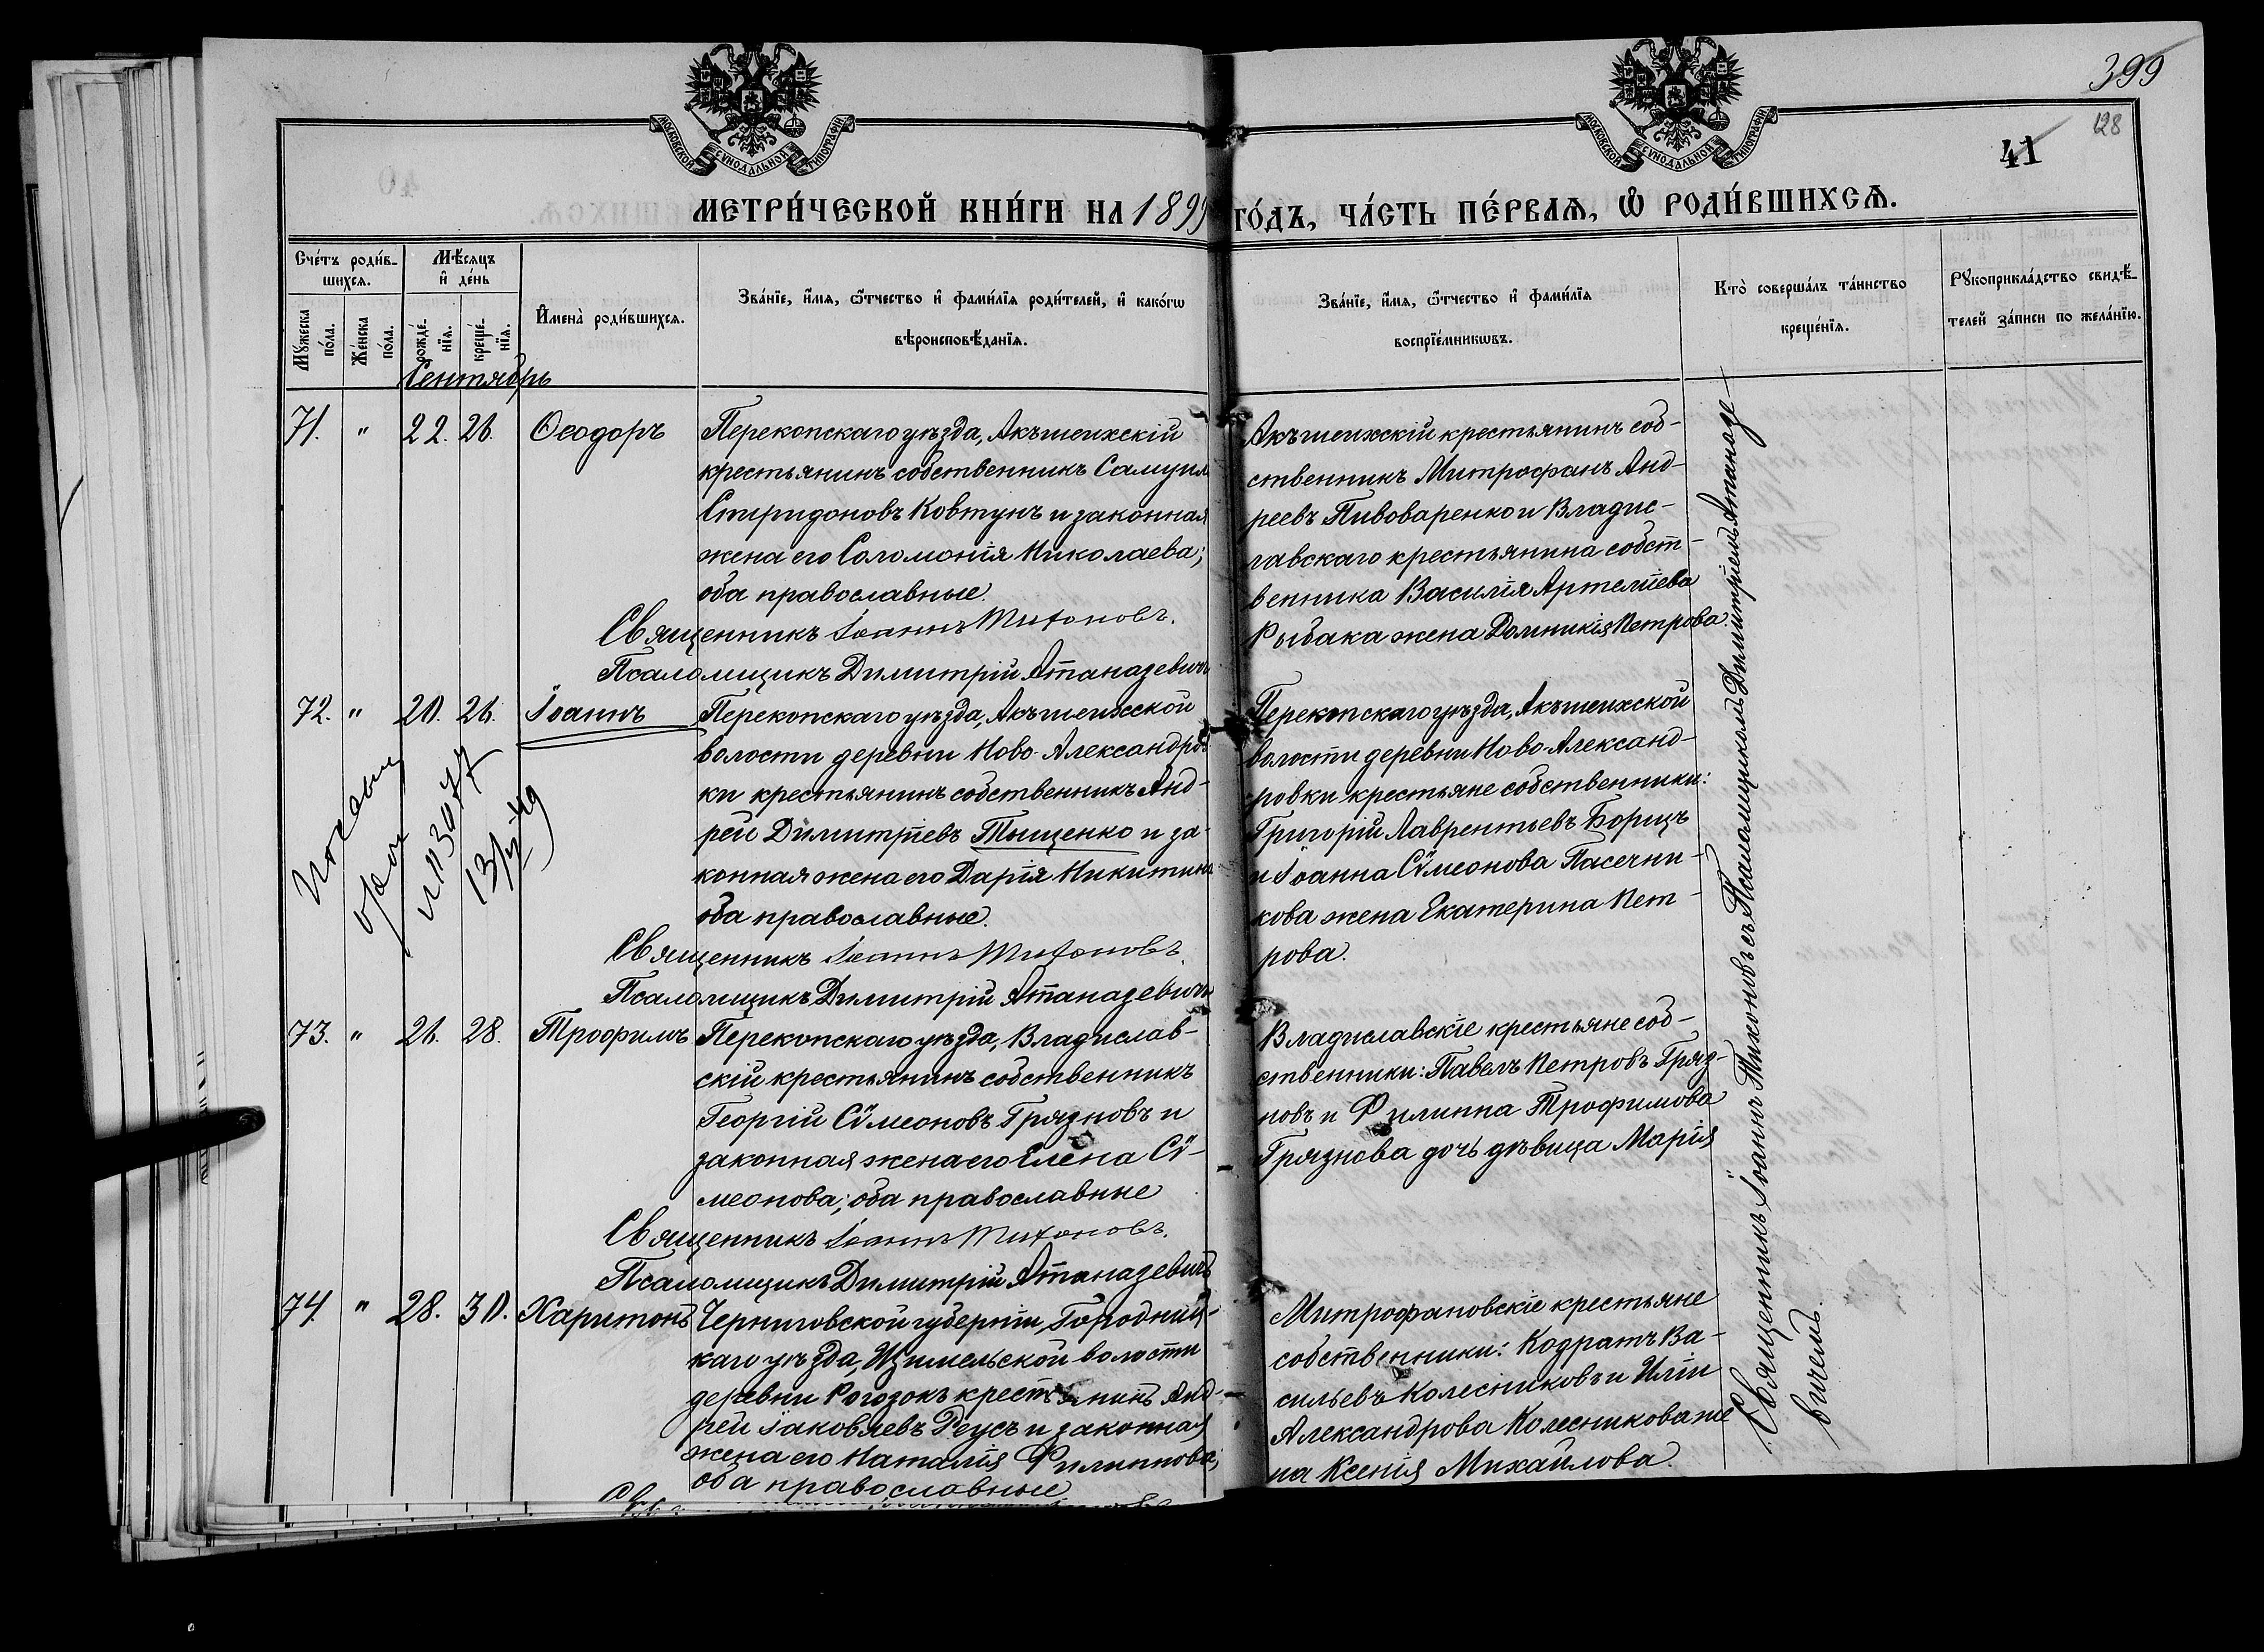 399
128
41
МОСКОВСКОЙ СѴНОДАЛЬНОЙ ТИПОГРАФІИ
МОСКОВСКОЙ СѴНОДАЛЬНОЙ ТИПОГРАФІИ
МЕТРИ́ЧЕСКОЙ КНИ́ГИ НА 1899 ГО́ДЪ, ЧА́СТЬ ПЕ́РВАЯ, Ѡ РОДИ́ВШИХСЯ.
Сче́тъ роди́в-
шихся.
Мѣ́сяцъ
и҆ де́нь
Мꙋ́жеска
по́ла.
Же́нска
по́ла.
рожде́-
нїя.
креще́-
нїя.
И҆мена̀ роди́вшихся.
Зва́нїе, и҆́мя, ѻ҆́тчество и҆ фами́лїя роди́телей, и҆ како́гѡ
вѣроисповѣ́данїя.
Зва́нїе, и҆́мя, ѻ҆́тчество и҆ фами́лїя
воспрїе́мникѡвъ.
Кто̀ соверша́лъ та́инство
креще́нїя.
Рꙋкоприкла́дство свидѣ́-
телей за́писи по жела́нїю.
Сентябрь
71. " 22. 26. Ѳеодоръ
Перекопскаго уѣзда, Акъшеихскій
крестьянинъ собственникъ Самуилъ
Спиридоновъ Ковтунъ и законная
жена его Соломонія Николаева;
оба православные.
Священникъ Іоаннъ Тихоновъ.
Псаломщикъ Димитрій Атаназевичъ
Акъшеихскій крестьянинъ соб-
ственникъ Митрофанъ Анд-
реевъ Пивоваренко и Владис-
лавскаго крестьянина собст-
венника Василія Артеміева
Рыбака жена Домникія Петрова.
72. " 20. 26. Іоаннъ
Перекопскаго уѣзда, Акъшеихской
волости деревни Ново-Александров
ки крестьянинъ собственникъ Анд-
рей Димитріевъ Тыщенко и за-
конная жена его Дарія Никитина
оба православные.
Священникъ Іоаннъ Тихоновъ.
Псаломщикъ Димитрій Атаназевичъ
Перекопскаго уѣзда, Акъшеихской
волости деревни Ново-Александ-
ровки крестьяне собственники:
Григорій Лаврентьевъ Борщъ
и Іоанна Сѵмеонова Пасечни-
кова жена Екатерина Пет-
рова.
73. " 26. 28. Трофимъ
Перекопскаго уѣзда, Владислав-
скій крестьянинъ собственникъ
Георгій Сѵмеоновъ Грязновъ и
законная жена его Елена Сѵ-
меонова; оба православные
Священникъ Іоаннъ Тихоновъ.
Псаломщикъ Димитрій Атаназевичъ
Владиславскіе крестьяне соб-
ственники: Павелъ Петровъ Гряз-
новъ и Филиппа Трофимова
Грязнова дочь дѣвица Марія
74. " 28. 30. Харитонъ
Черниговской губерніи, Городниц-
каго уѣзда, волости
деревни Рогозокъ крестьянинъ Анд-
рей Іаковлевъ Реусъ и законная
жена его Наталія Филиппова;
оба православные
Митрофановскіе крестьяне
собственники: Кодратъ Ва-
сильевъ Колесниковъ и Иліи
Александрова Колесникова же
на Ксенія Михайлова.
Священникъ Іоаннъ Тихоновъ съ Псаломщикомъ Димитріемъ Атаназе-
вичемъ.